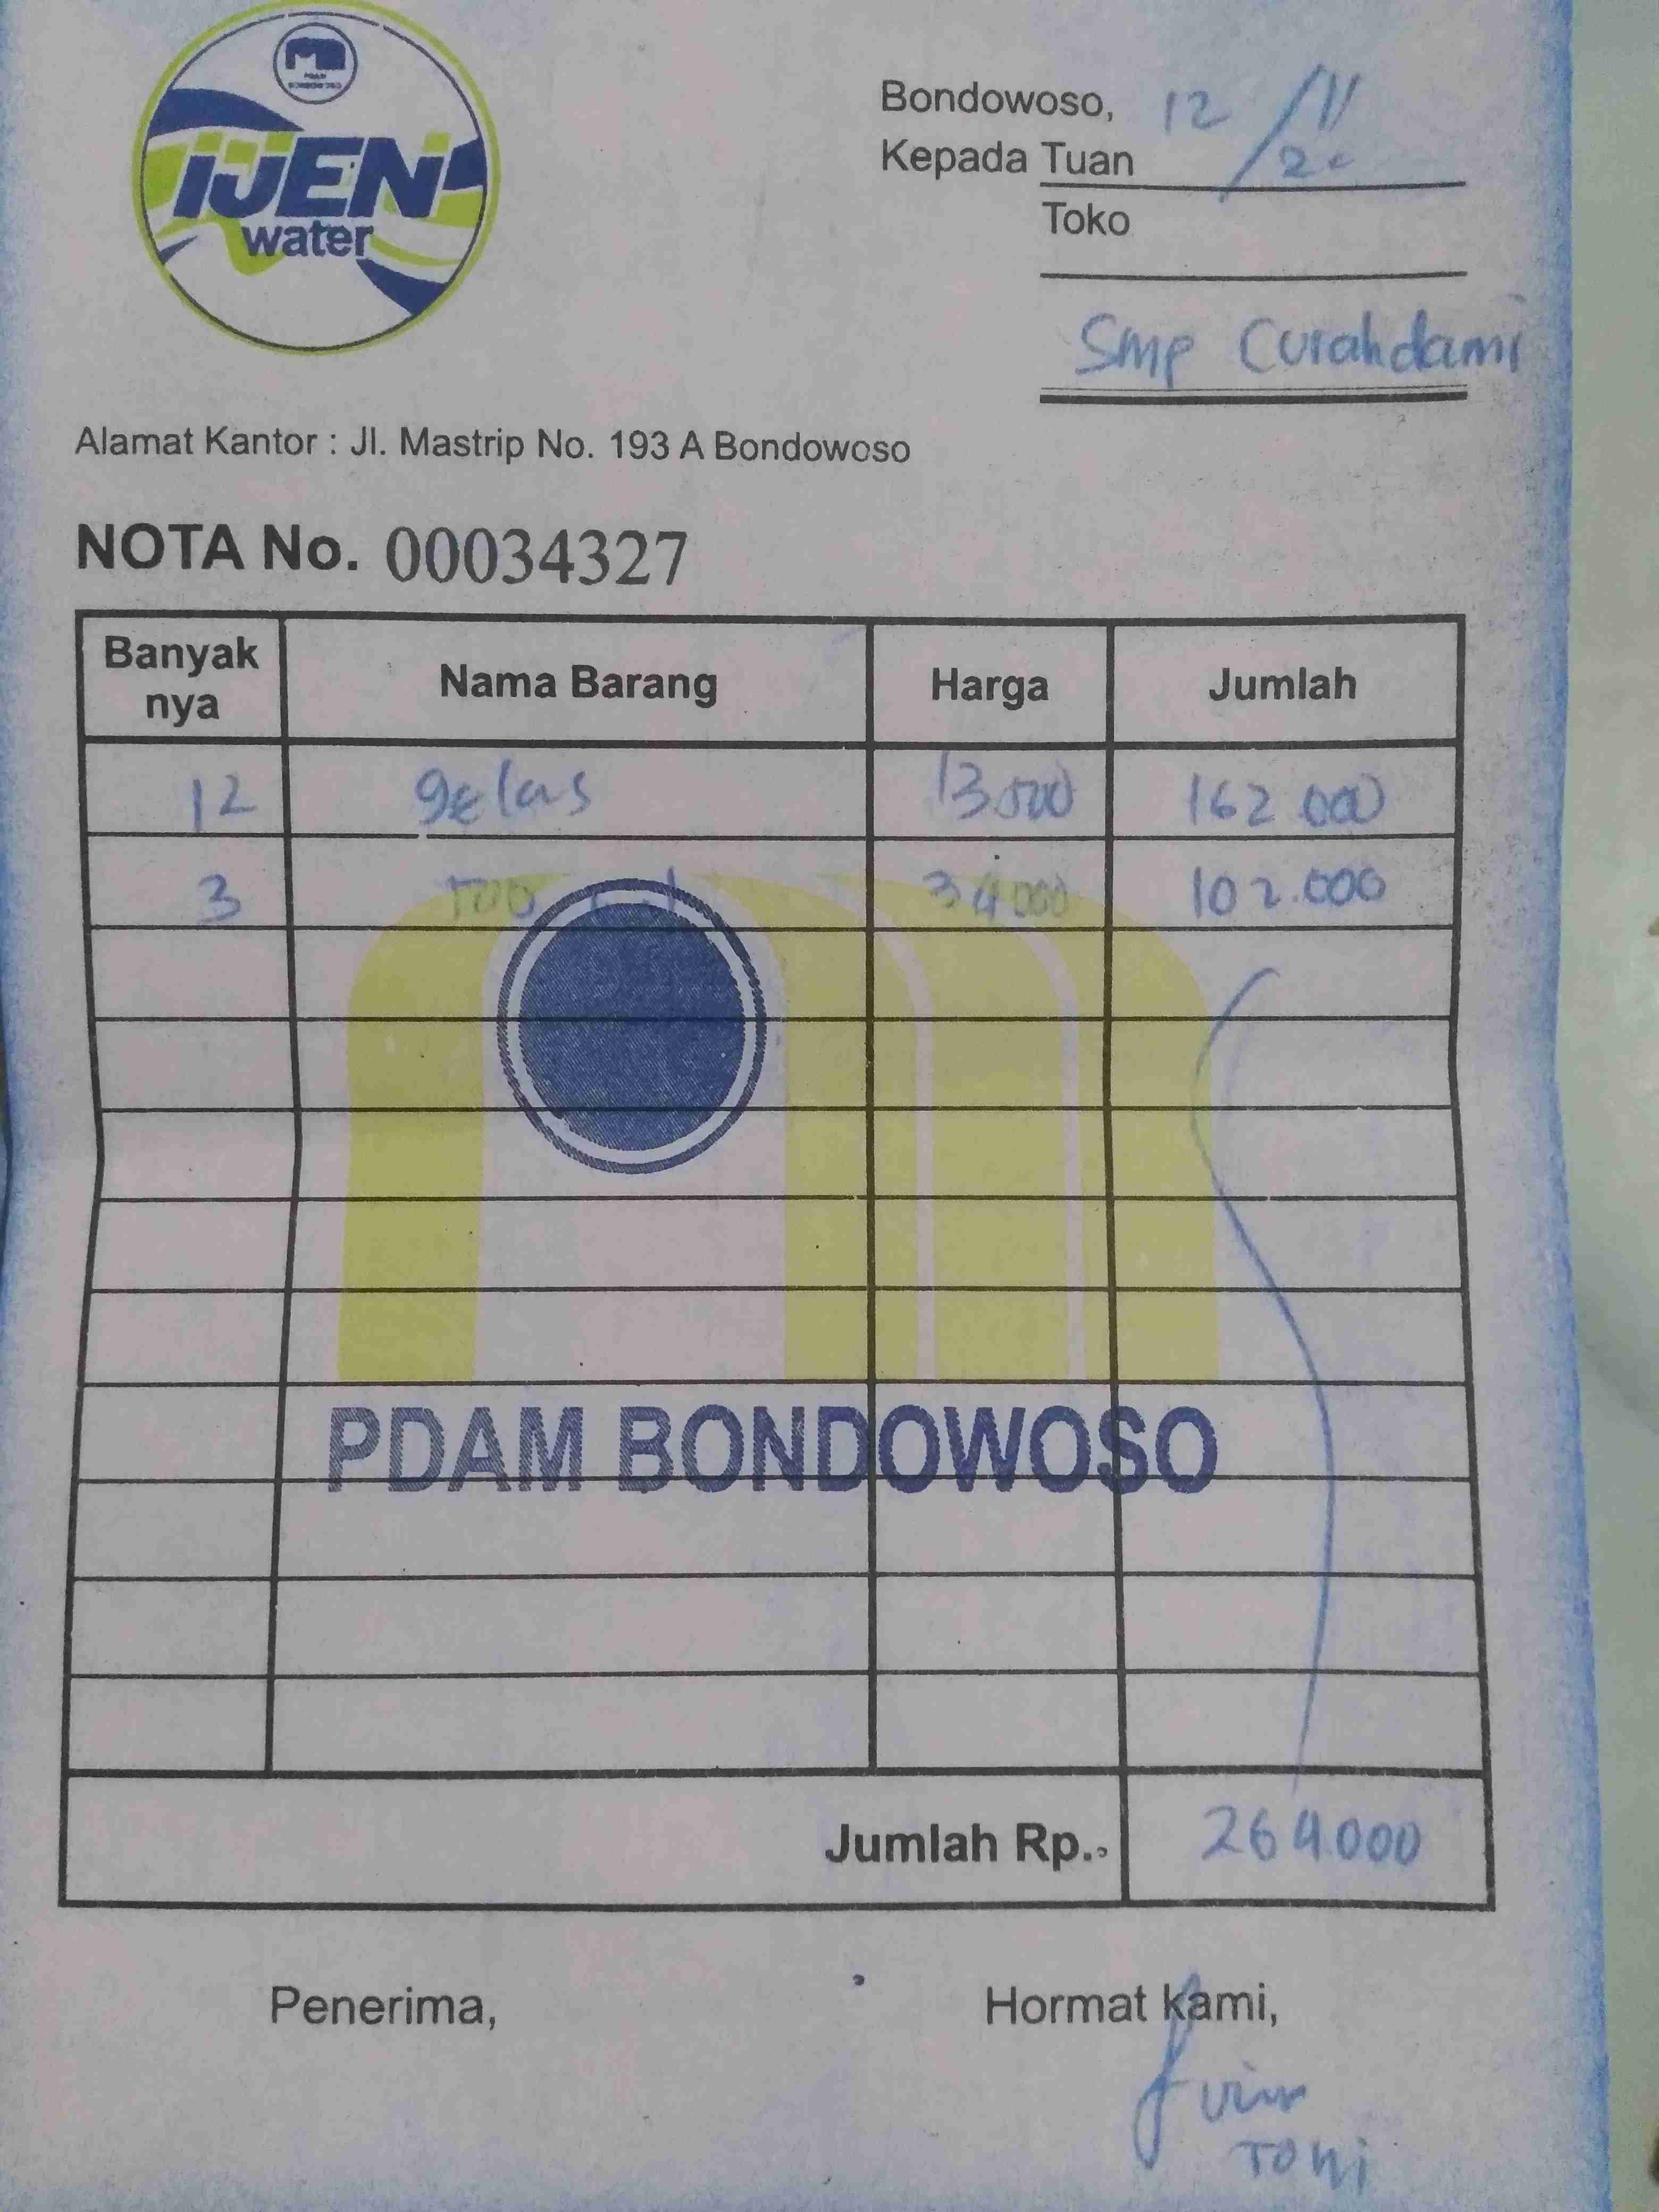 PDAM
BONDOWOSO
IJEN
water
Bondowoso, 12/11/20
Kepada Tuan
Toko
Smp Curahdami
Alamat Kantor : Jl. Mastrip No. 193 A Bondowoso
NOTA No. 00034327
Banyak nya Nama Barang Harga Jumlah
12 gelas 13.500 162.000
3 34.000 102.000
PDAM BONDOWOSO
Jumlah Rp. 264.000
Penerima, Hormat kami,
Toni